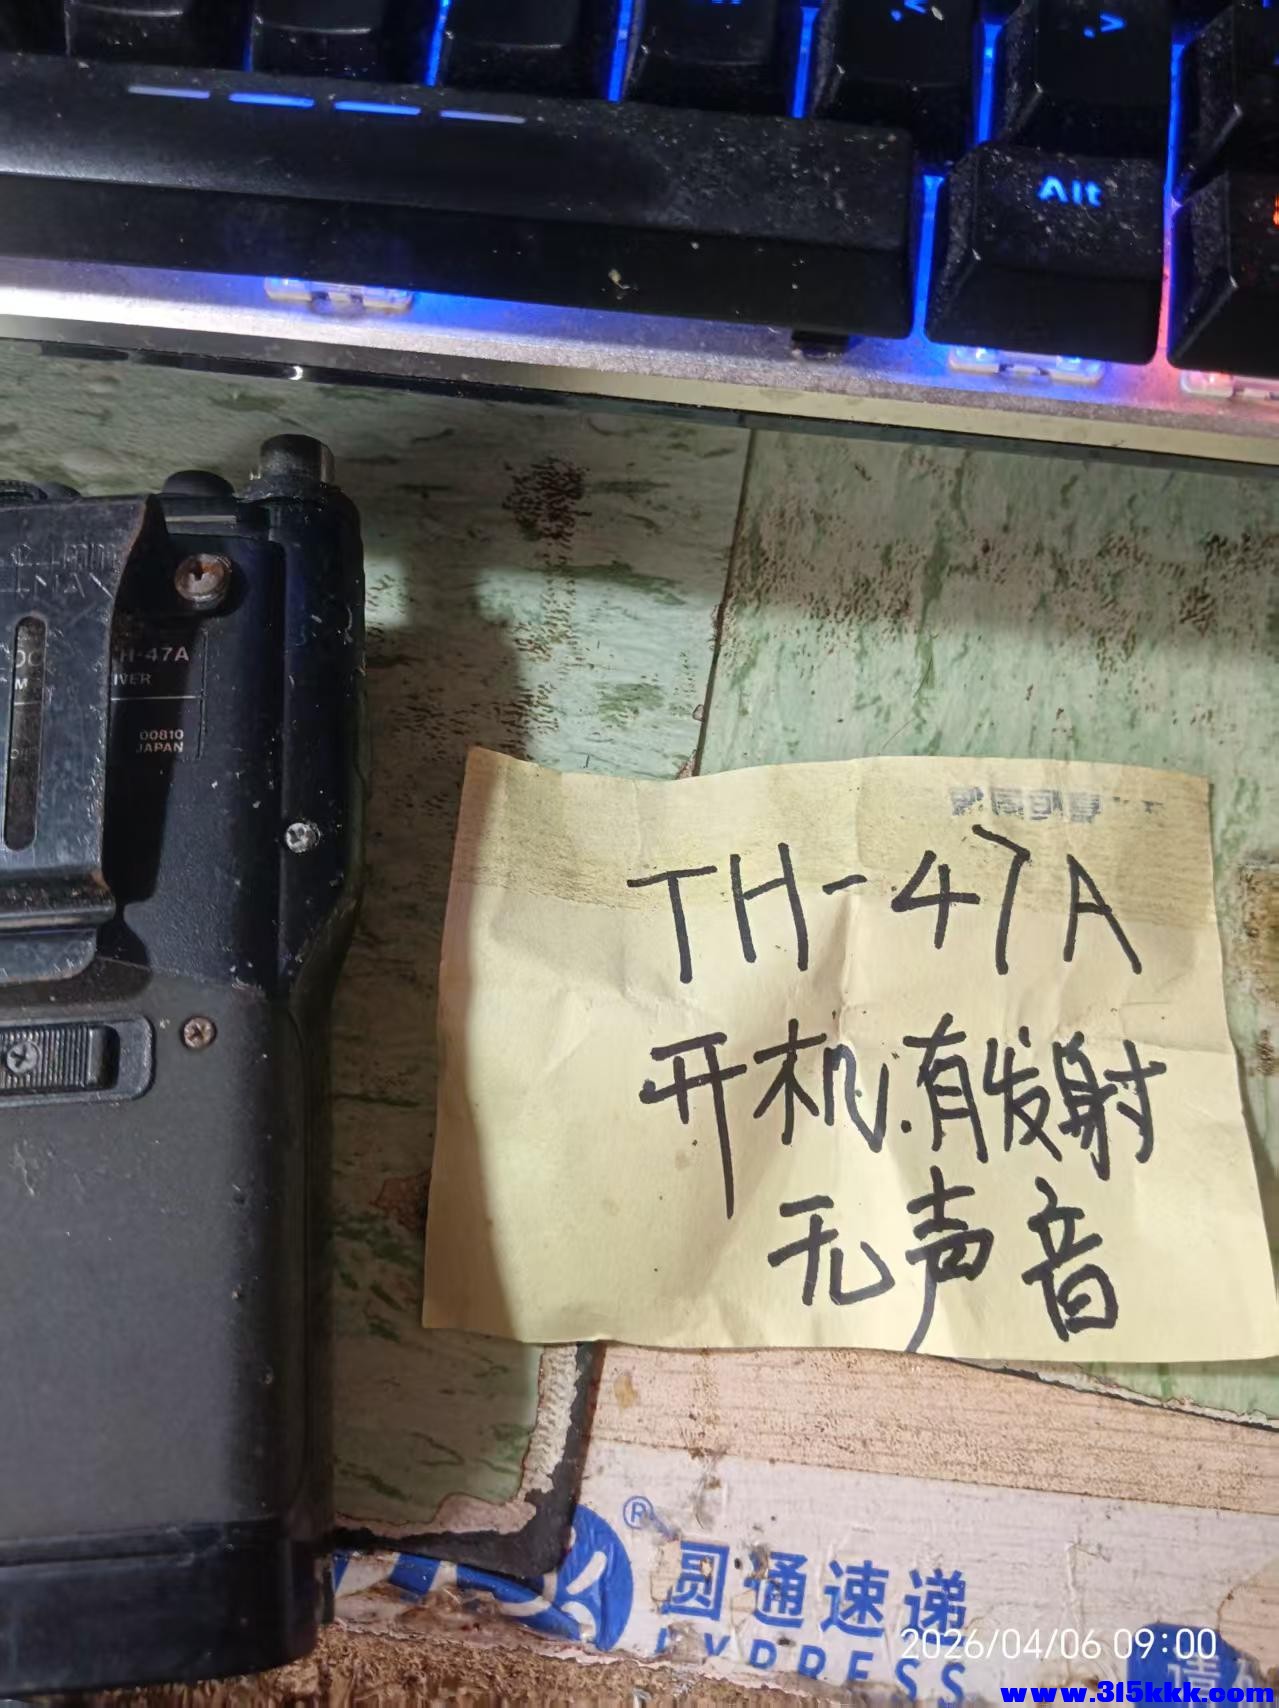 Alt
H-47A
IVER
00810
JAPAN
TH-47A
开机.有发射
无声音
®
圆通速递
EXPRESS
2026/04/06 09:00
www.315kkk.com